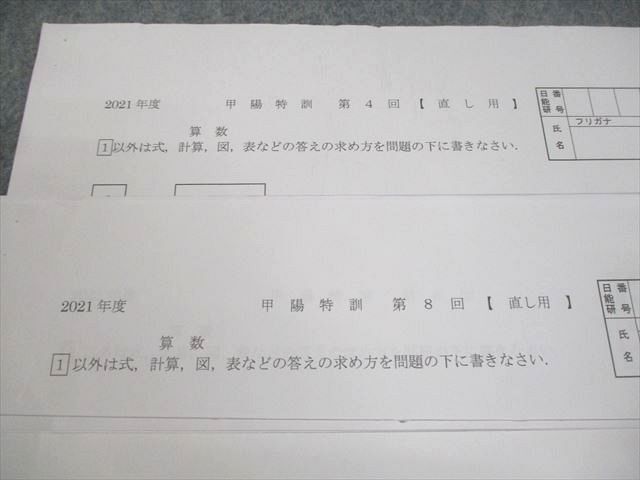 2021年度 甲陽特訓 第4回【直し用】
日能研 番号
フリガナ
氏名
算数
1 以外は式，計算，図，表などの答えの求め方を問題の下に書きなさい．
2021年度 甲陽特訓 第8回【直し用】
日能研 番号
氏名
算数
1 以外は式，計算，図，表などの答えの求め方を問題の下に書きなさい．